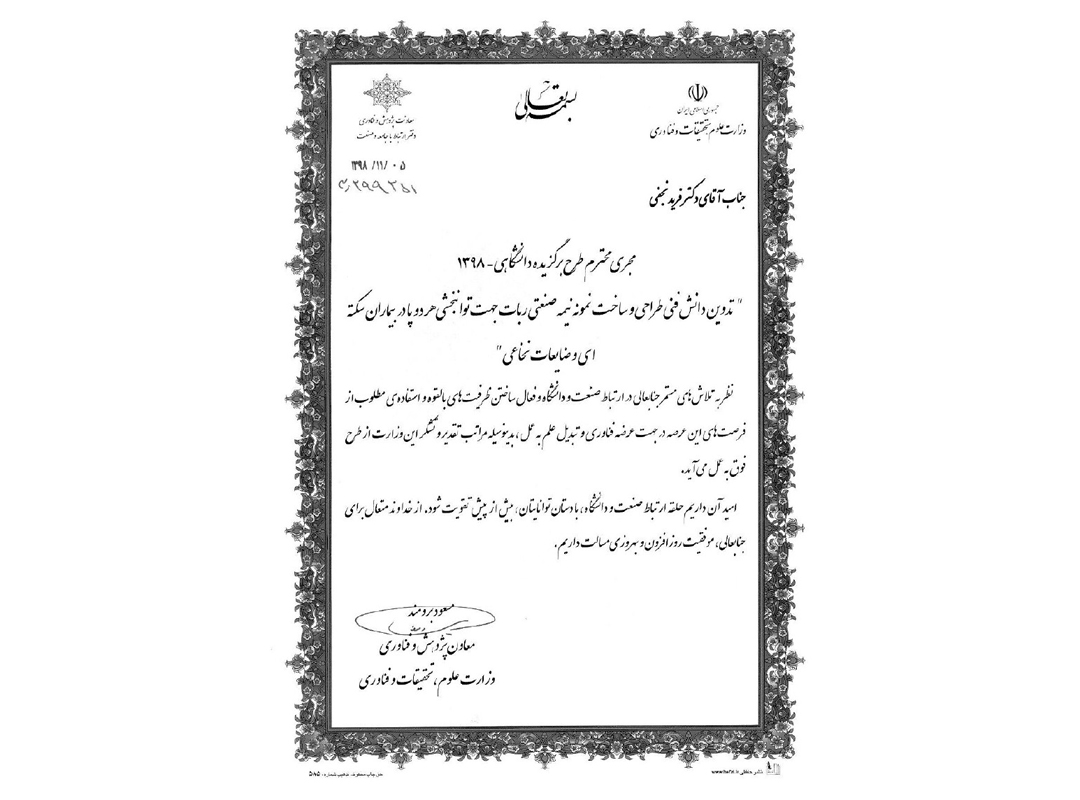 بسمه تعالی
جمهوری اسلامی ایران
وزارت علوم تحقیقات و فناوری
معاونت پژوهش و فناوری
دفتر ارتباط با جامعه و صنعت
۱۳۹۸/۱۱/۰۵
جناب آقای دکتر فرید نجفی
مجری محترم طرح برگزیده دانشگاهی - ۱۳۹۸
" تدوین دانش فنی طراحی و ساخت نمونه نیمه صنعتی ربات جهت توانبخشی هر دو پا در بیماران سکته
ای و ضایعات نخاعی "
نظر به تلاش های مستمر جنابعالی در ارتباط صنعت و دانشگاه و فعال ساختن ظرفیت های بالقوه و استفاده ی مطلوب از
فرصت های این عرصه در جهت عرضه فناوری و تبدیل علم به عمل، بدینوسیله مراتب تقدیر و تشکر این وزارت از طرح
فوق به عمل می آید.
امید آن داریم حلقه ارتباط صنعت و دانشگاه، با دستان توانایتان، بیش از پیش تقویت شود. از خداوند متعال برای
جنابعالی، موفقیت روز افزون و بهروزی مسالت داریم.
مسعود برومند
معاون پژوهش و فناوری
وزارت علوم، تحقیقات و فناوری
حق چاپ محفوظ، تذهیب شماره: ۵۸۵